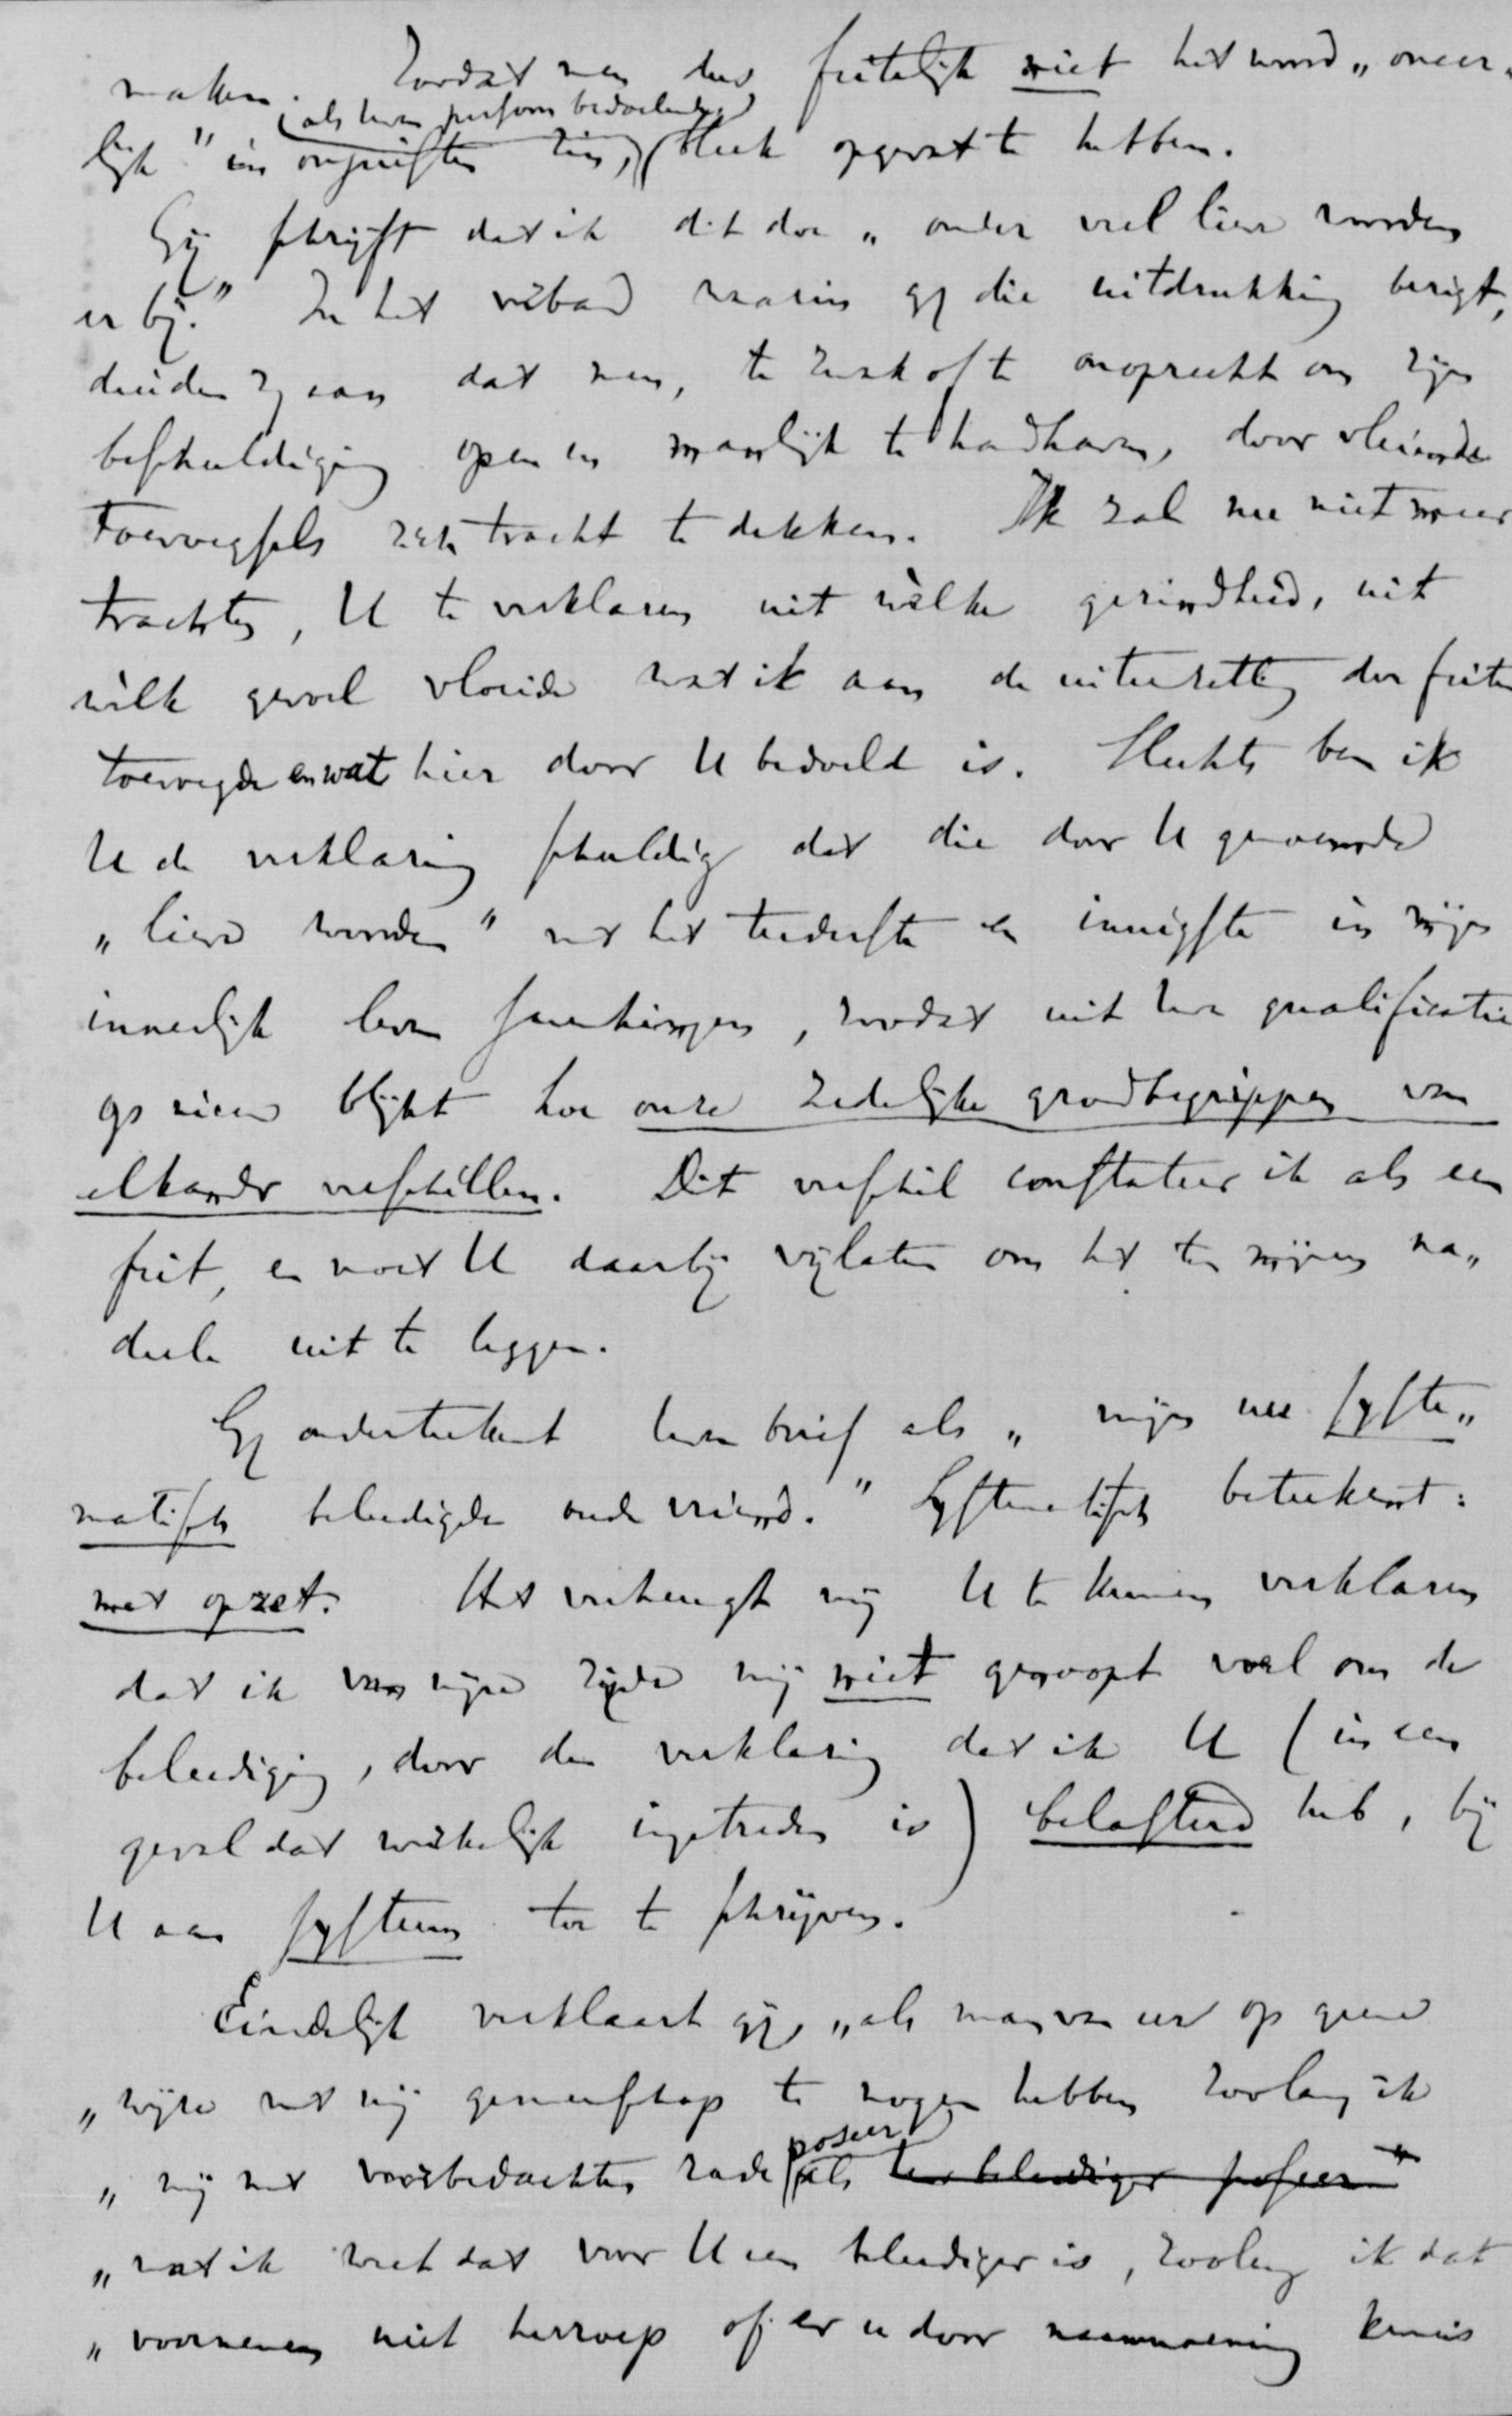 maken. Zoodat men dus feitelijk niet het woord „oneer„
(als uwen persoon bedoelende)
lijk" in ongunstigen zin, bleek opgevat te hebben.
Gij schrijft dat ik dit doe „onder veel lieve woorden
er bij." In het verband waarin gij die uitdrukking bezigt,
duiden zij aan dat men, te zwak of te onoprecht om zijn
beschuldiging open en manlijk te handhaven, door vleiende
toevoegsels zich tracht te dekken. Ik zal nu niet meer
trachten, U te verklaren uit wèlke gezindheid, uit
wèlk gevoel vloeide wat ik aan de uiteenzetting der feiten
toevoegde en wat hier door U bedoeld is. Slechts ben ik
U de verklaring schuldig dat die door U genoemde
„lieve woorden" met het teederste en innigste in mijn
innerlijk leven samenhingen, zoodat uit uwe qualificatie
op nieuw blijkt hoe onze zedelijke grondbegrippen van
elkander verschillen. Dit verschil constateer ik als een
feit, en moet U daarbij vrijlaten om het ten mijnen na„
deele uit te leggen.
Gij onderteekent uwen brief als „mijn nu syste„
matisch beleedigde oude vriend." Systematisch beteekent:
met opzet. Het verheugt mij U te kunnen verklaren
dat ik van mijne zijde mij niet genoopt voel om de
beleediging, door de verklaring dat ik U (in een
geval dat werkelijk ingetreden is) belasterd heb, bij
U aan systeem toe te schrijven.
Eindelijk verklaart gij, „als man van eer op geene
„wijze met mij gemeenschap te mogen hebben zoolang ik
poseer
„mij met voorbedachten rade als uw beleediger poseer"
„wat ik weet dat voor U een beleediger is, zoolang ik dat
„voornemen niet herroep of er u door kennis